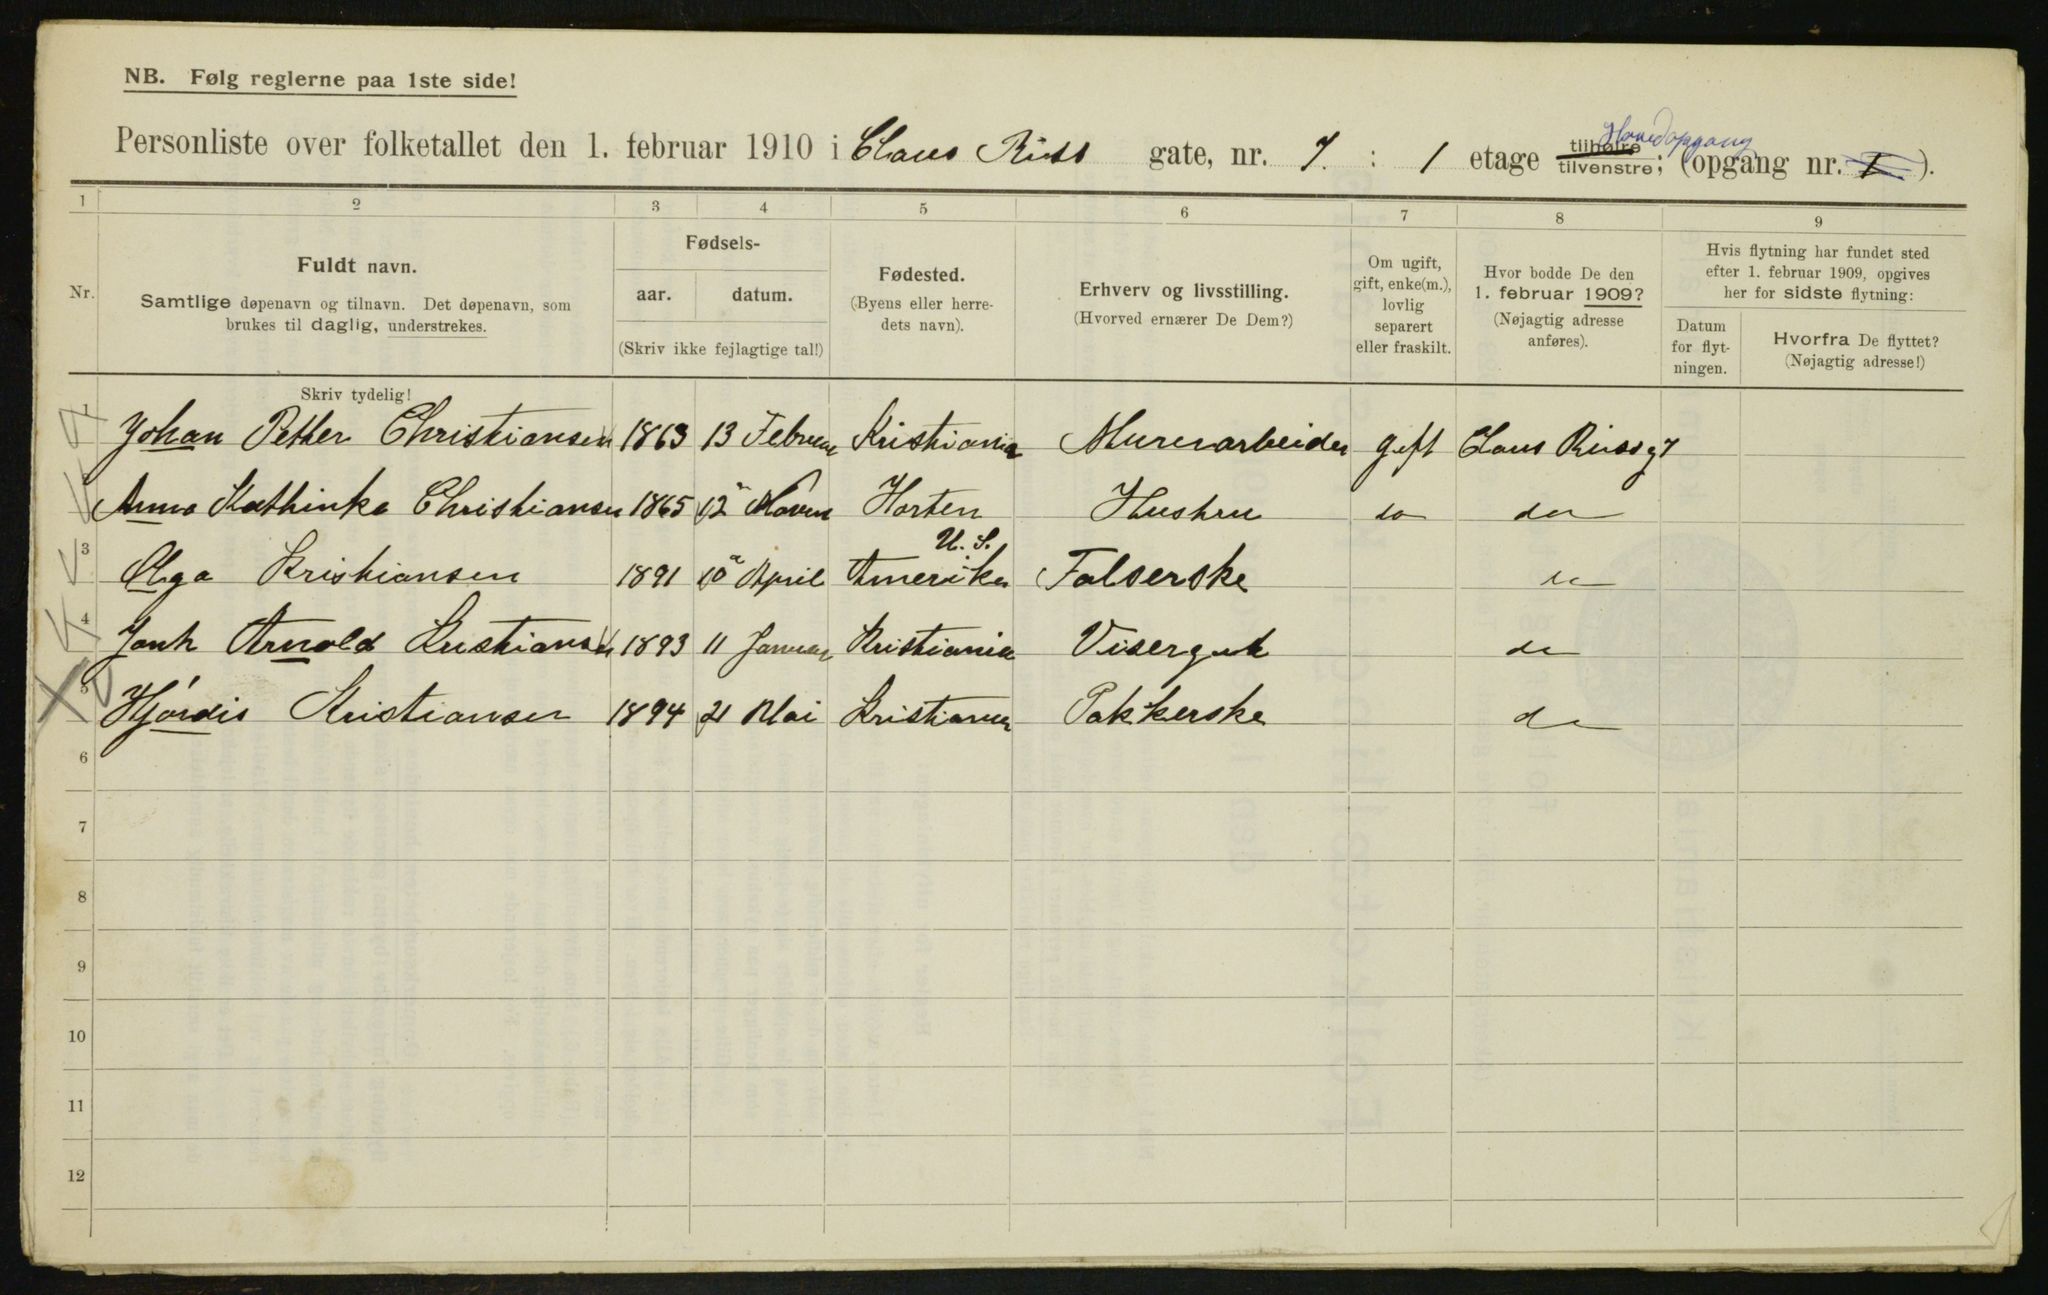 NB. Følg reglerne paa 1ste side!
Personliste over folketallet den 1. februar 1910 i Claus Riiss gate, nr. 7. : 1 etage tilhøire tilvenstre; (opgang nr. 1).
Hovedopgang
1 2 3 4 5 6 7 8 9
Nr.
Fuldt navn.
Samtlige døpenavn og tilnavn. Det døpenavn, som
brukes til daglig, understrekes.
Fødsels-
aar. datum.
(Skriv ikke fejlagtige tal!)
Fødested.
(Byens eller herre-
dets navn).
Erhverv og livsstilling.
(Hvorved ernærer De Dem?)
Om ugift,
gift, enke(m.),
lovlig
separert
eller fraskilt.
Hvor bodde De den
1. februar 1909?
(Nøjagtig adresse
anføres).
Hvis flytning har fundet sted
efter 1. februar 1909, opgives
her for sidste flytning:
Datum
for flyt-
ningen.
Hvorfra De flyttet?
(Nøjagtig adresse!)
Skriv tydelig!
1 Johan Pether Christiansen 1863 13 Februar Kristiania Murerarbeider gift Claus Riissg 7
Anna Kathinka Christiansen 1865 12 Novem Horten Hustru do do
3 Olga Kristiansen 1891 10 April U. S. Amerika Falserske do
4 Arnold Kristiansen 1893 11 Januar Kristiania Visergut do
5 Hjørdis Kristiansen 1894 21 Mai Kristiania Pakkerske do
6
7
8
9
10
11
12